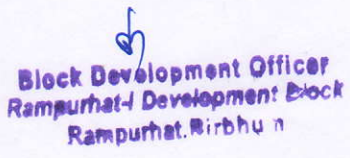 Block Development Officer
Rampurhat-I Development Block
Rampurhat. Birbhum